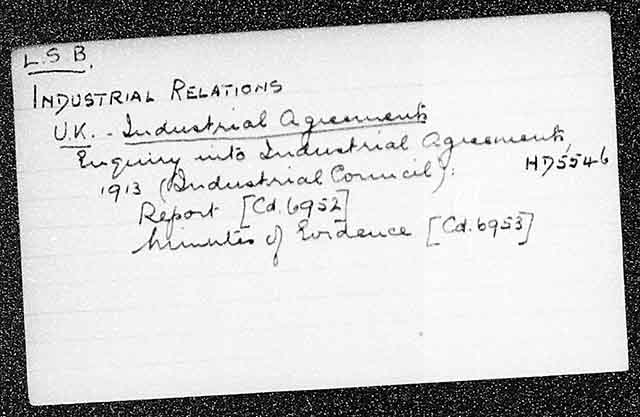 L.S B.
INDUSTRIAL RELATIONS
U.K. - Industrial Agreements
Enquiry into Industrial Agreements,
1913 (Industrial Council): HD5546
Report [Cd.6952]
Minutes of Evidence [Cd.6953]